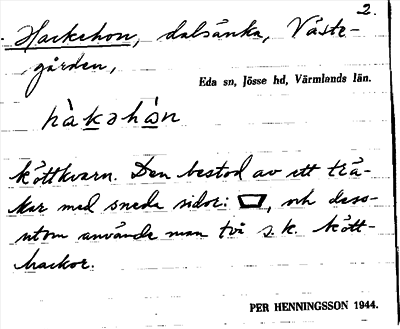 2.
Hackehon, dalsänka, Väste-
gården,
Eda sn, Jösse hd, Värmlands län.
hàkəhån
köttkvarn. Den bestod av ett trä-
kar med sneda sidor: , och dess-
utom använde man två s.k. kött-
hackor.
PER HENNINGSSON 1944.